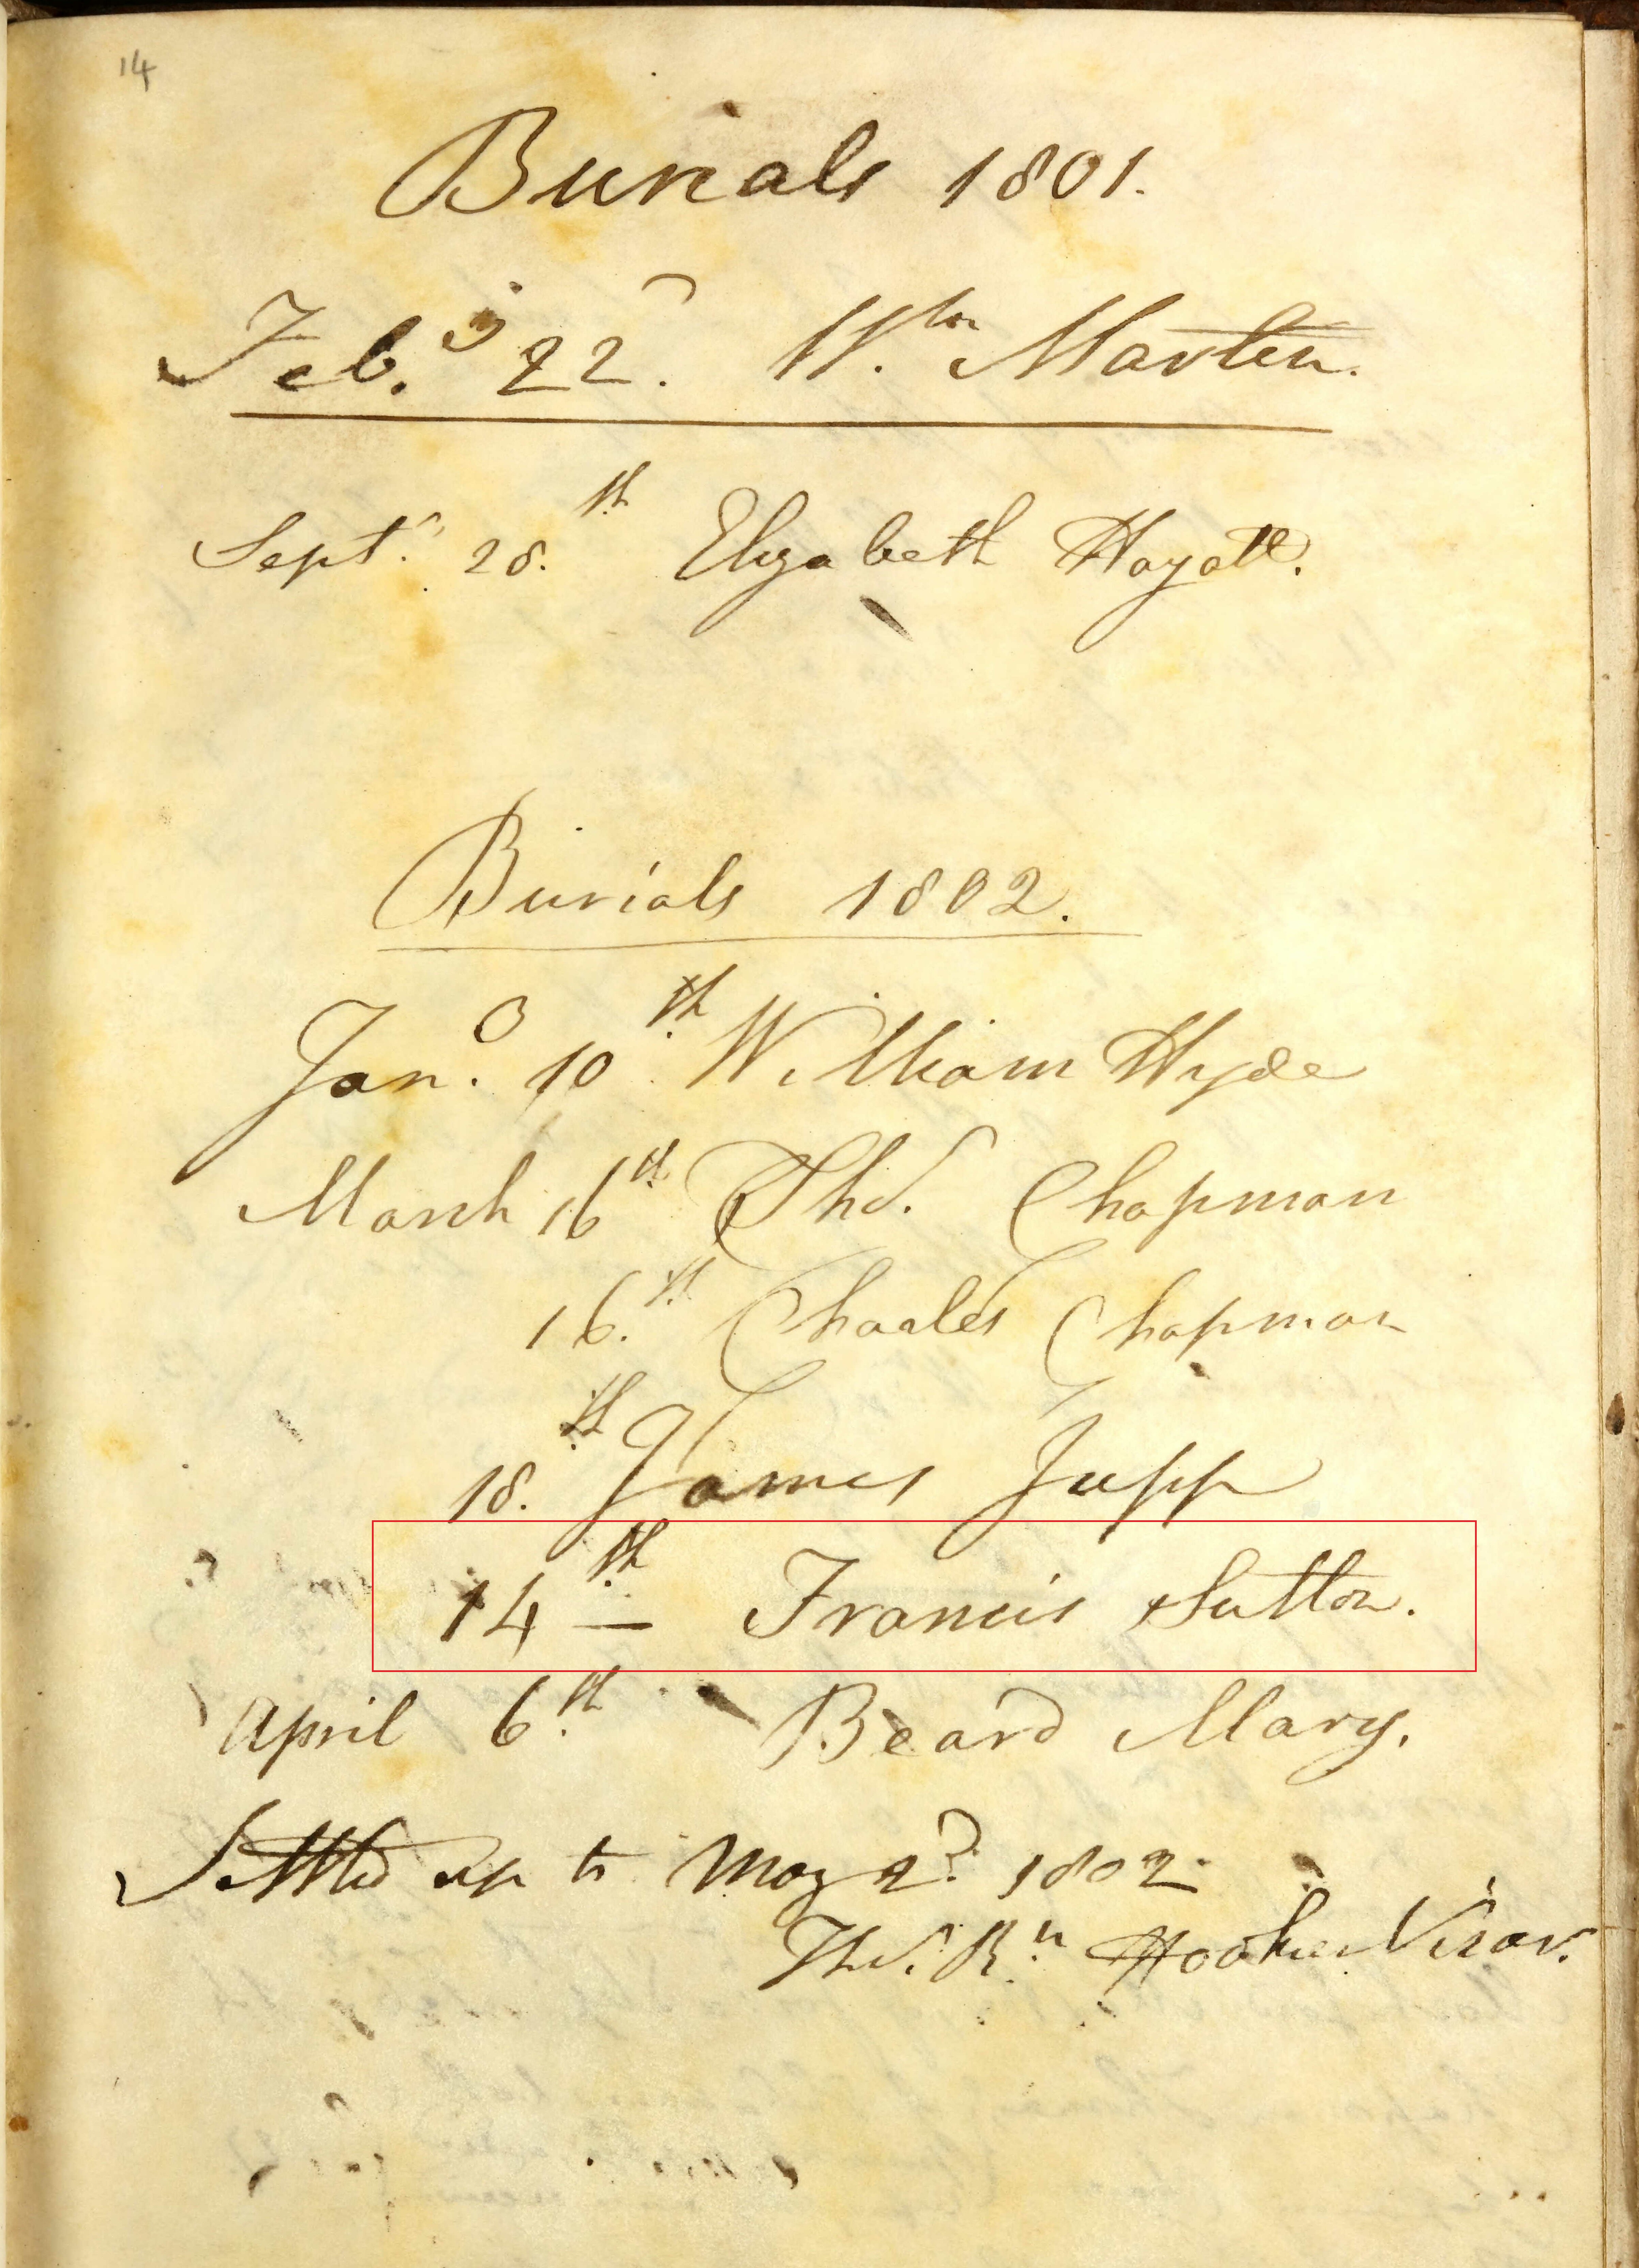 14
Burials 1801.
Feb.y 22d. Wm. Marten.
Septr. 28.th Elizabeth Hoyatt.
Burials 1802.
Jany. 10th. William Hyde
March 16th Thos. Chapman
16.th Charles Chapman
18.th James Jupp
14th — Francis Sutton.
April 6.th Beard Mary.
Settled up to May 2d. 1802.
Thos. Rd. Hooker Vicar.